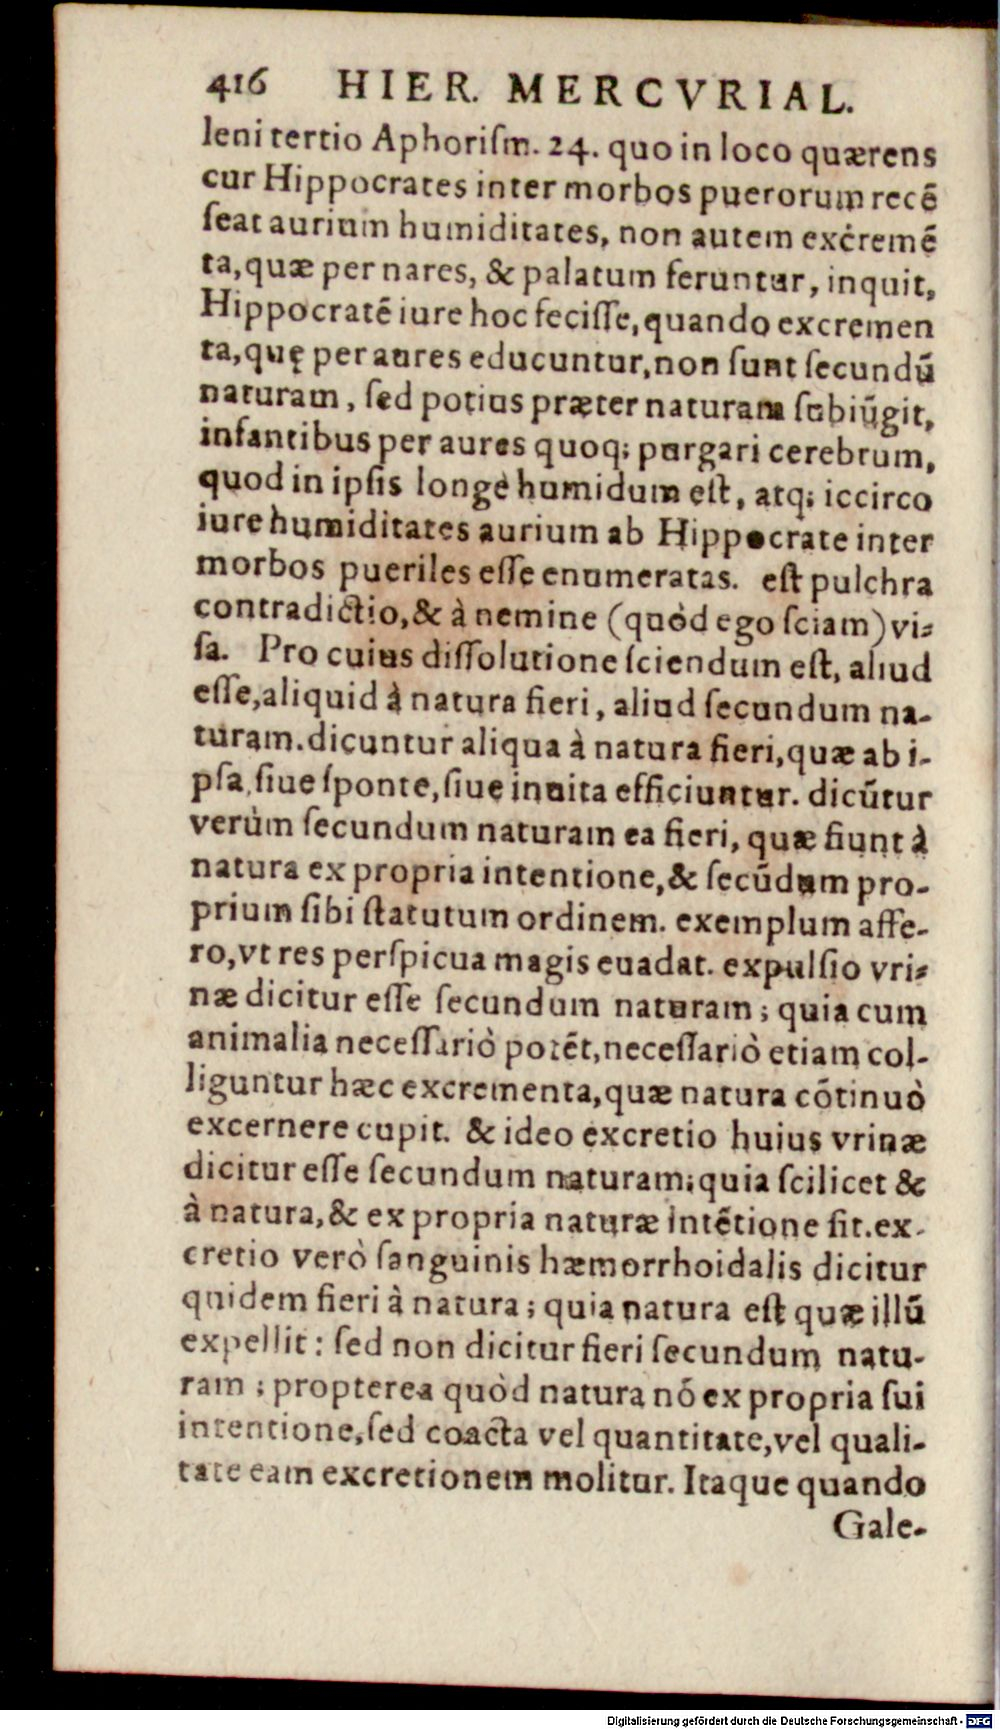 416 HIER. MERCVRIAL.
leni tertio Aphoriſm. 24. quo in loco quærens
cur Hippocrates inter morbos puerorum recẽ
ſeat aurium humiditates, non autem excremẽ
ta, quæ per nares, & palatum feruntur, inquit,
Hippocratẽ iure hoc feciſſe, quando excremen
ta, quę per aures educuntur, non ſunt ſecundũ
naturam, ſed potius præter naturam ſubiũgit,
infantibus per aures quoq; purgari cerebrum,
quod in ipſis longè humidum eſt, atq; iccirco
iure humiditates aurium ab Hippocrate inter
morbos pueriles eſſe enumeratas. eſt pulchra
contradictio, & à nemine (quòd ego ſciam) vi-
ſa. Pro cuius diſſolutione ſciendum eſt, aliud
eſſe, aliquid à natura fieri, aliud ſecundum na-
turam. dicuntur aliqua à natura fieri, quæ ab i-
pſa, ſiue ſponte, ſiue inuita efficiuntur. dicũtur
verùm ſecundum naturam ea fieri, quæ fiunt à
natura ex propria intentione, & ſecũdum pro-
prium ſibi ſtatutum ordinem. exemplum affe-
ro, vt res perſpicua magis euadat. expulſio vri-
næ dicitur eſſe ſecundum naturam; quia cum
animalia neceſſariò potẽt, neceſſariò etiam col-
liguntur hæc excrementa, quæ natura cõtinuò
excernere cupit. & ideo excretio huius vrinæ
dicitur eſſe ſecundum naturam; quia ſcilicet &
à natura, & ex propria naturæ intẽtione fit. ex-
cretio verò ſanguinis hæmorrhoidalis dicitur
quidem fieri à natura; quia natura eſt quæ illũ
expellit: ſed non dicitur fieri ſecundum natu-
ram; propterea quòd natura nõ ex propria ſui
intentione, ſed coacta vel quantitate, vel quali-
tate eam excretionem molitur. Itaque quando
Gale-
Digitalisierung gefördert durch die Deutsche Forschungsgemeinschaft - DFG